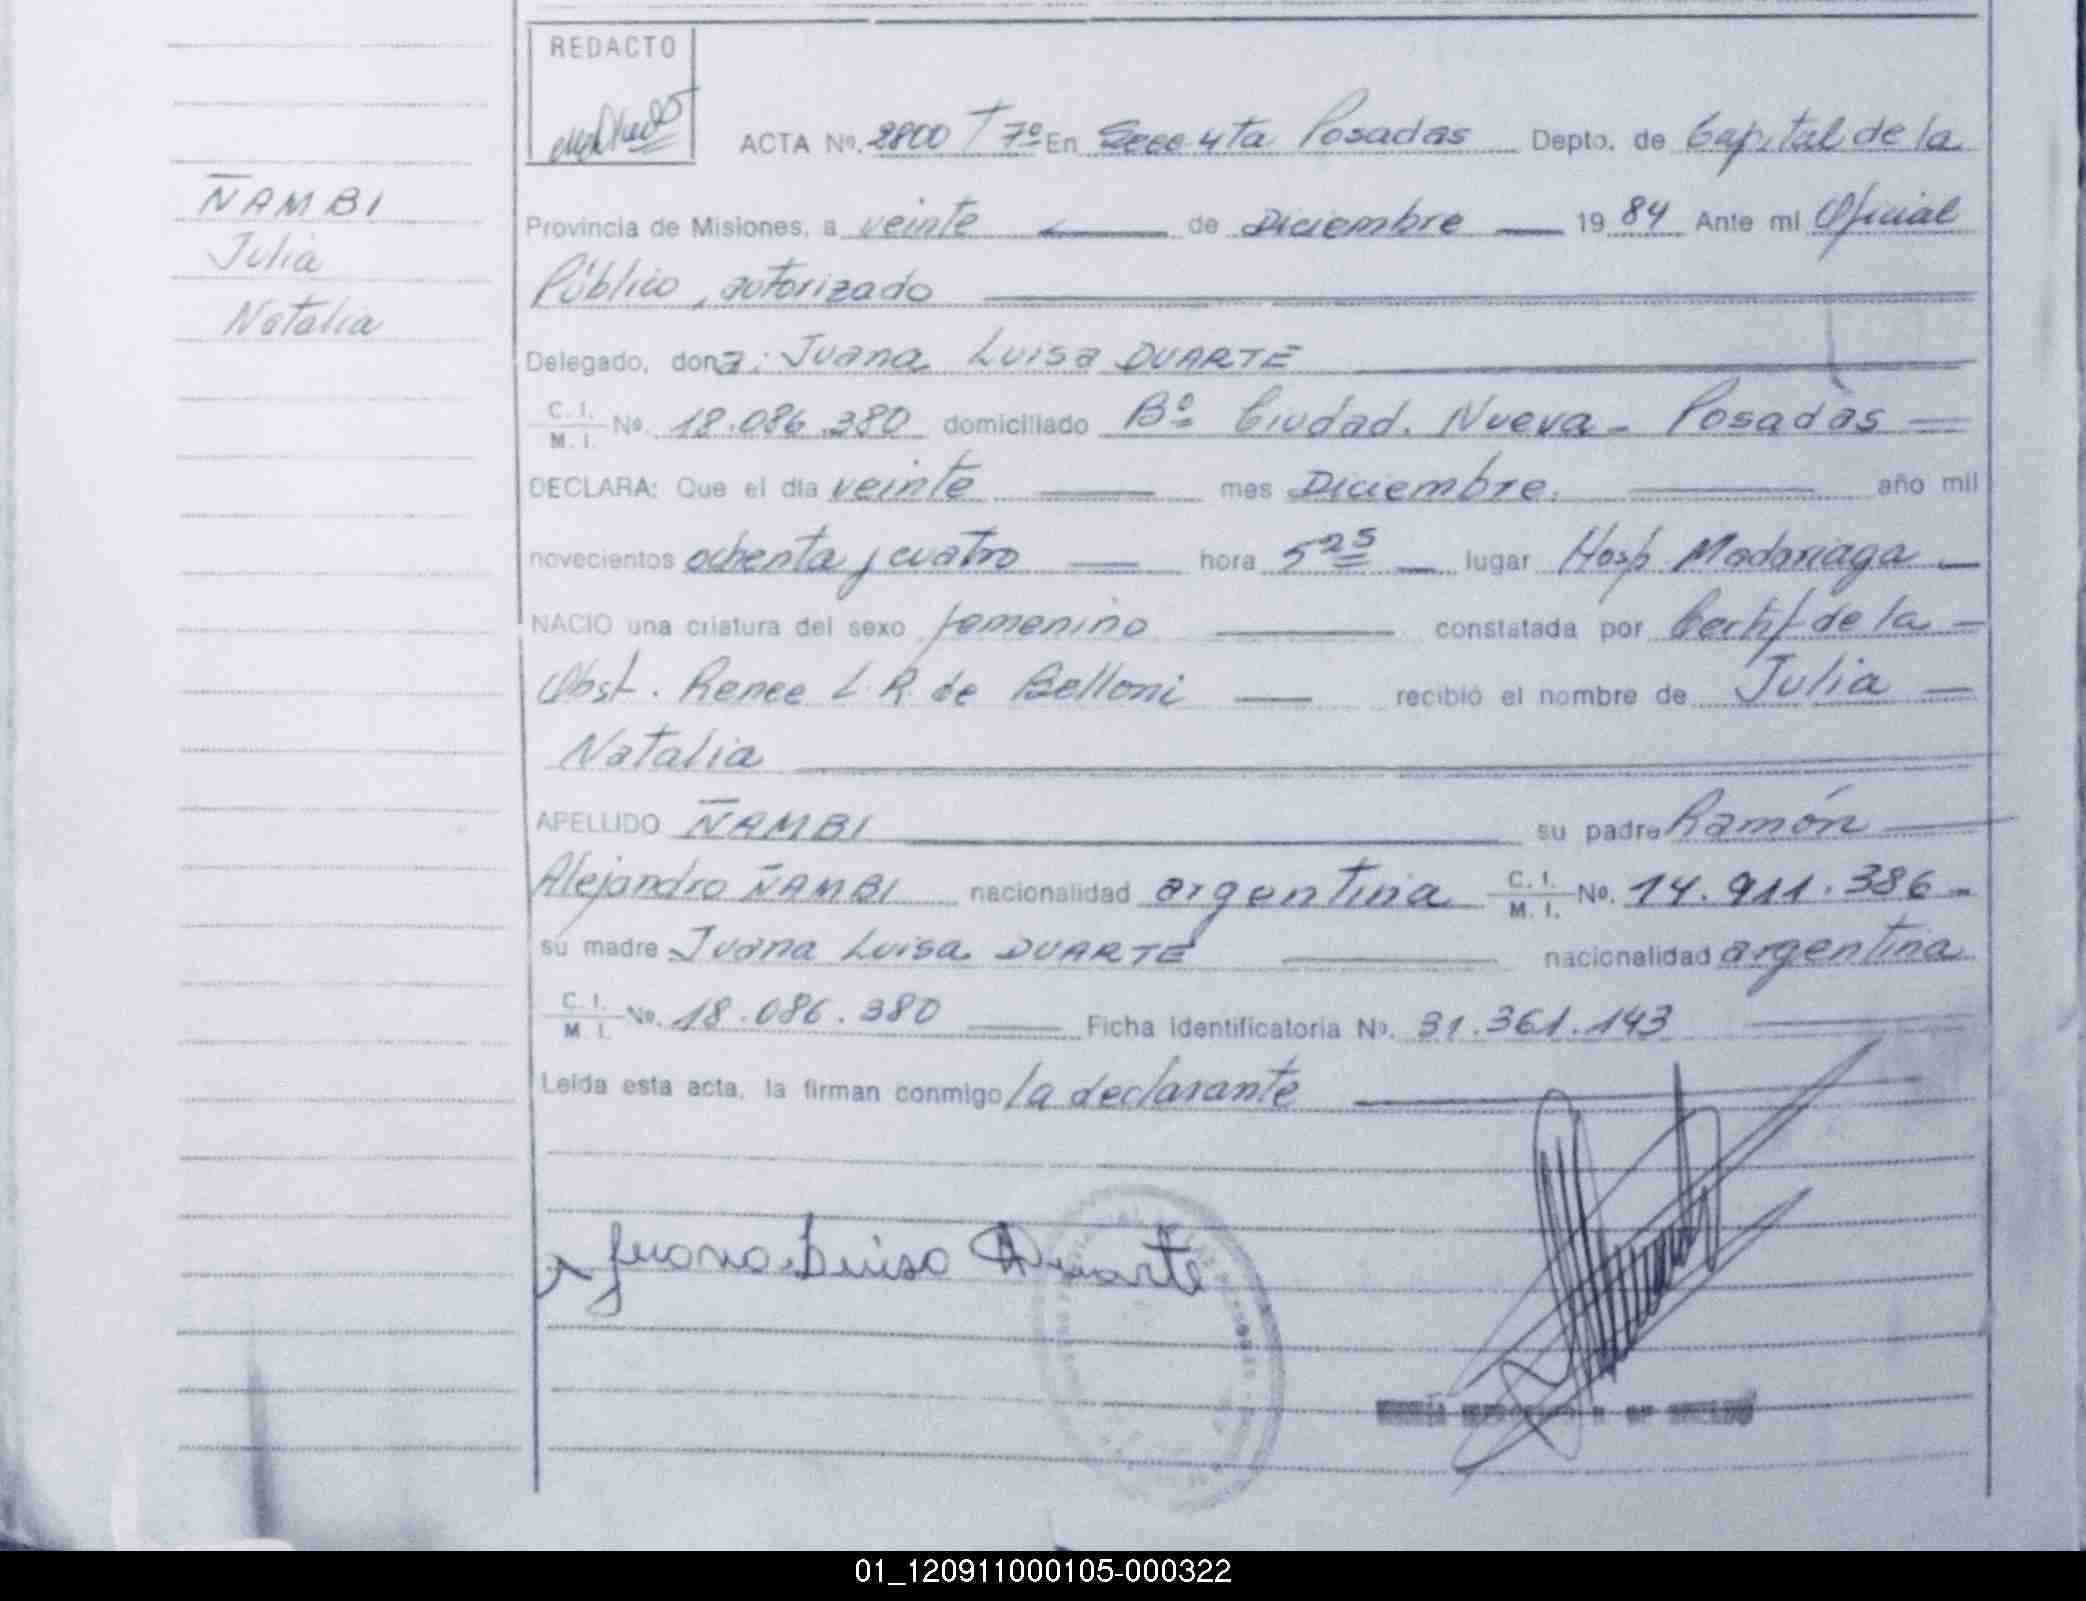 REDACTO
ACTA Nº. 2800 T 7º En Secc 4ta Posadas Depto. de Capital de la
ÑAMBI
Julia
Natalia
Provincia de Misiones, a veinte de Diciembre 1984 Ante mi Oficial
Público, autorizado
Delegado, dona: Juana Luisa DUARTE
C. I. M. I. Nº. 18.086.380 domiciliado Bº Ciudad. Nueva - Posadas
DECLARA: Que el dia veinte mes Diciembre. año mil
novecientos ochenta y cuatro hora 5 25 lugar Hosp Madariaga
NACIO una criatura del sexo femenino constatada por Certif de la
Obst. Renee L. R. de Belloni recibió el nombre de Julia
Natalia
APELLIDO ÑAMBI su padre Ramón
Alejandro ÑAMBI nacionalidad argentina C. I. M. I. Nº. 14.911.386
su madre Juana Luisa DUARTE nacionalidad argentina
C. I. M. I. Nº. 18.086.380 Ficha Identificatoria Nº. 31.361.143
Leída esta acta, la firman conmigo la declarante
Juana Luisa Duarte
01_120911000105-000322